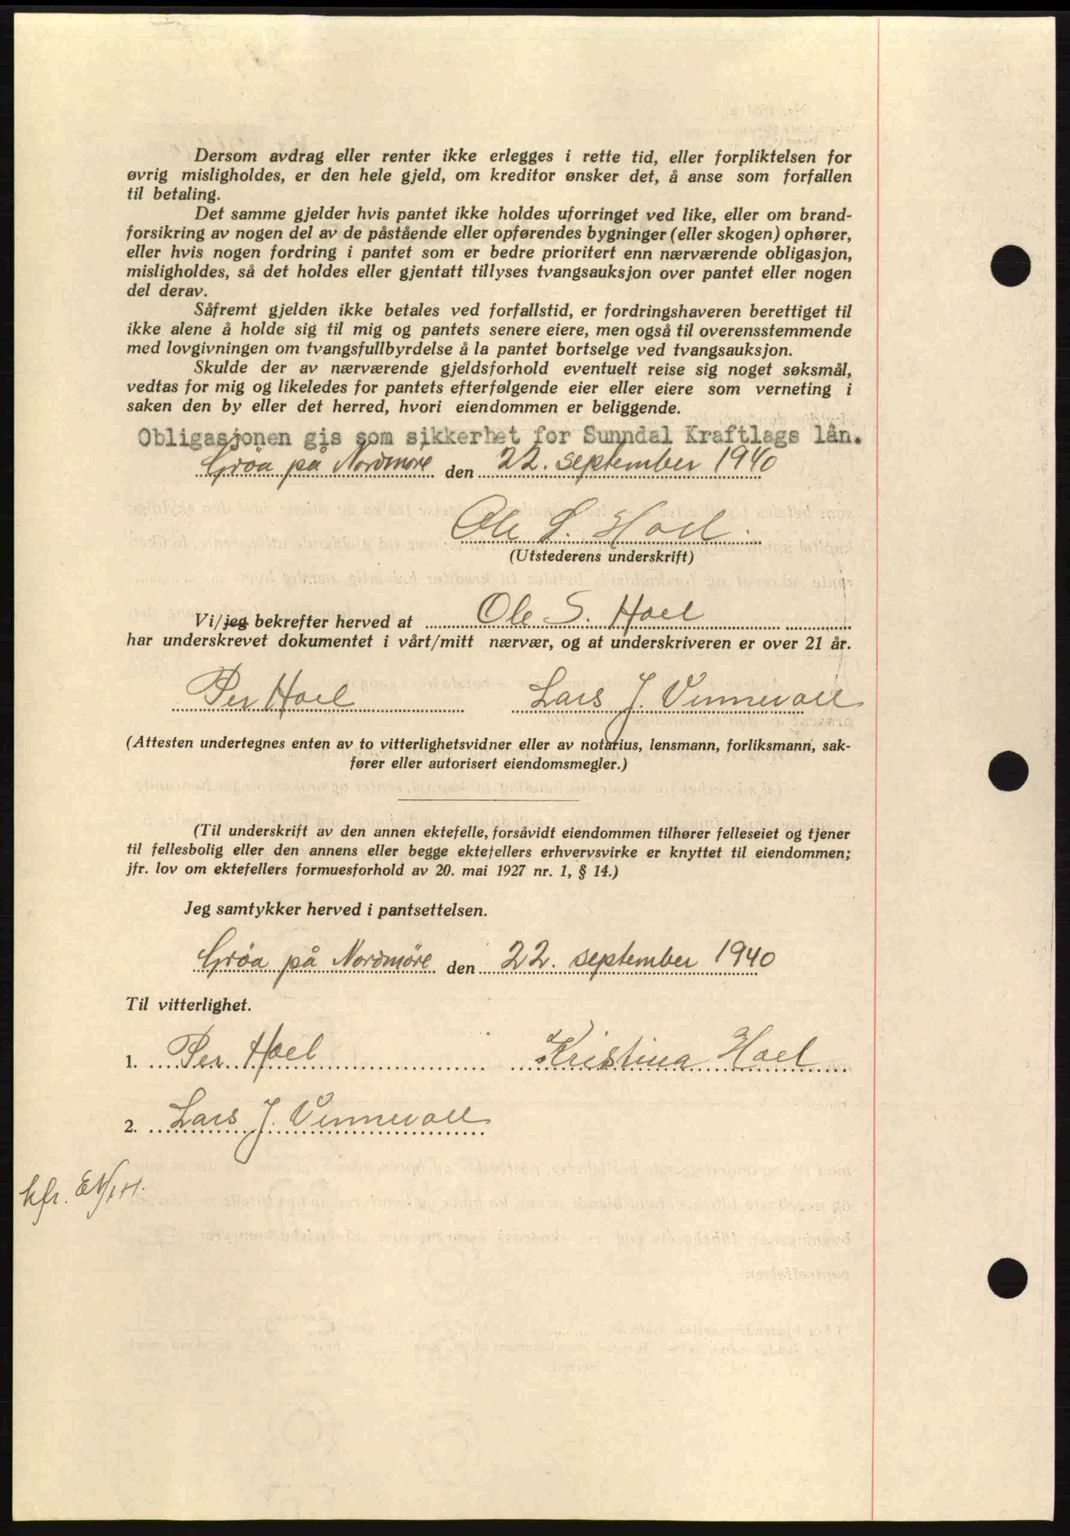 Dersom avdrag eller renter ikke erlegges i rette tid, eller forpliktelsen for
øvrig misligholdes, er den hele gjeld, om kreditor ønsker det, å anse som forfallen
til betaling.
Det samme gjelder hvis pantet ikke holdes uforringet ved like, eller om brand-
forsikring av nogen del av de påstående eller opførendes bygninger (eller skogen) ophører,
eller hvis nogen fordring i pantet som er bedre prioritert enn nærværende obligasjon,
misligholdes, så det holdes eller gjentatt tillyses tvangsauksjon over pantet eller nogen
del derav.
Såfremt gjelden ikke betales ved forfallstid, er fordringshaveren berettiget til
ikke alene å holde sig til mig og pantets senere eiere, men også til overensstemmende
med lovgivningen om tvangsfullbyrdelse å la pantet bortselge ved tvangsauksjon.
Skulde der av nærværende gjeldsforhold eventuelt reise sig noget søksmål,
vedtas for mig og likeledes for pantets efterfølgende eier eller eiere som verneting i
saken den by eller det herred, hvori eiendommen er beliggende.
Obligasjonen gis som sikkerhet for Sunndal Kraftlags lån.
Grøa på Nordmøre den 22. september 1940
Ole S. Hoel
(Utstederens underskrift)
Vi/jeg bekrefter herved at Ole S. Hoel
har underskrevet dokumentet i vårt/mitt nærvær, og at underskriveren er over 21 år.
Per Hoel Lars J. Vinnevoll
(Attesten undertegnes enten av to vitterlighetsvidner eller av notarius, lensmann, forliksmann, sak-
fører eller autorisert eiendomsmegler.)
(Til underskrift av den annen ektefelle, forsåvidt eiendommen tilhører felleseiet og tjener
til fellesbolig eller den annens eller begge ektefellers erhvervsvirke er knyttet til eiendommen;
jfr. lov om ektefellers formuesforhold av 20. mai 1927 nr. 1, § 14.)
Jeg samtykker herved i pantsettelsen.
Grøa på Nordmøre den 22. september 1940
Til vitterlighet.
1. Per Hoel Kristina Hoel
2. Lars J. Vinnevoll